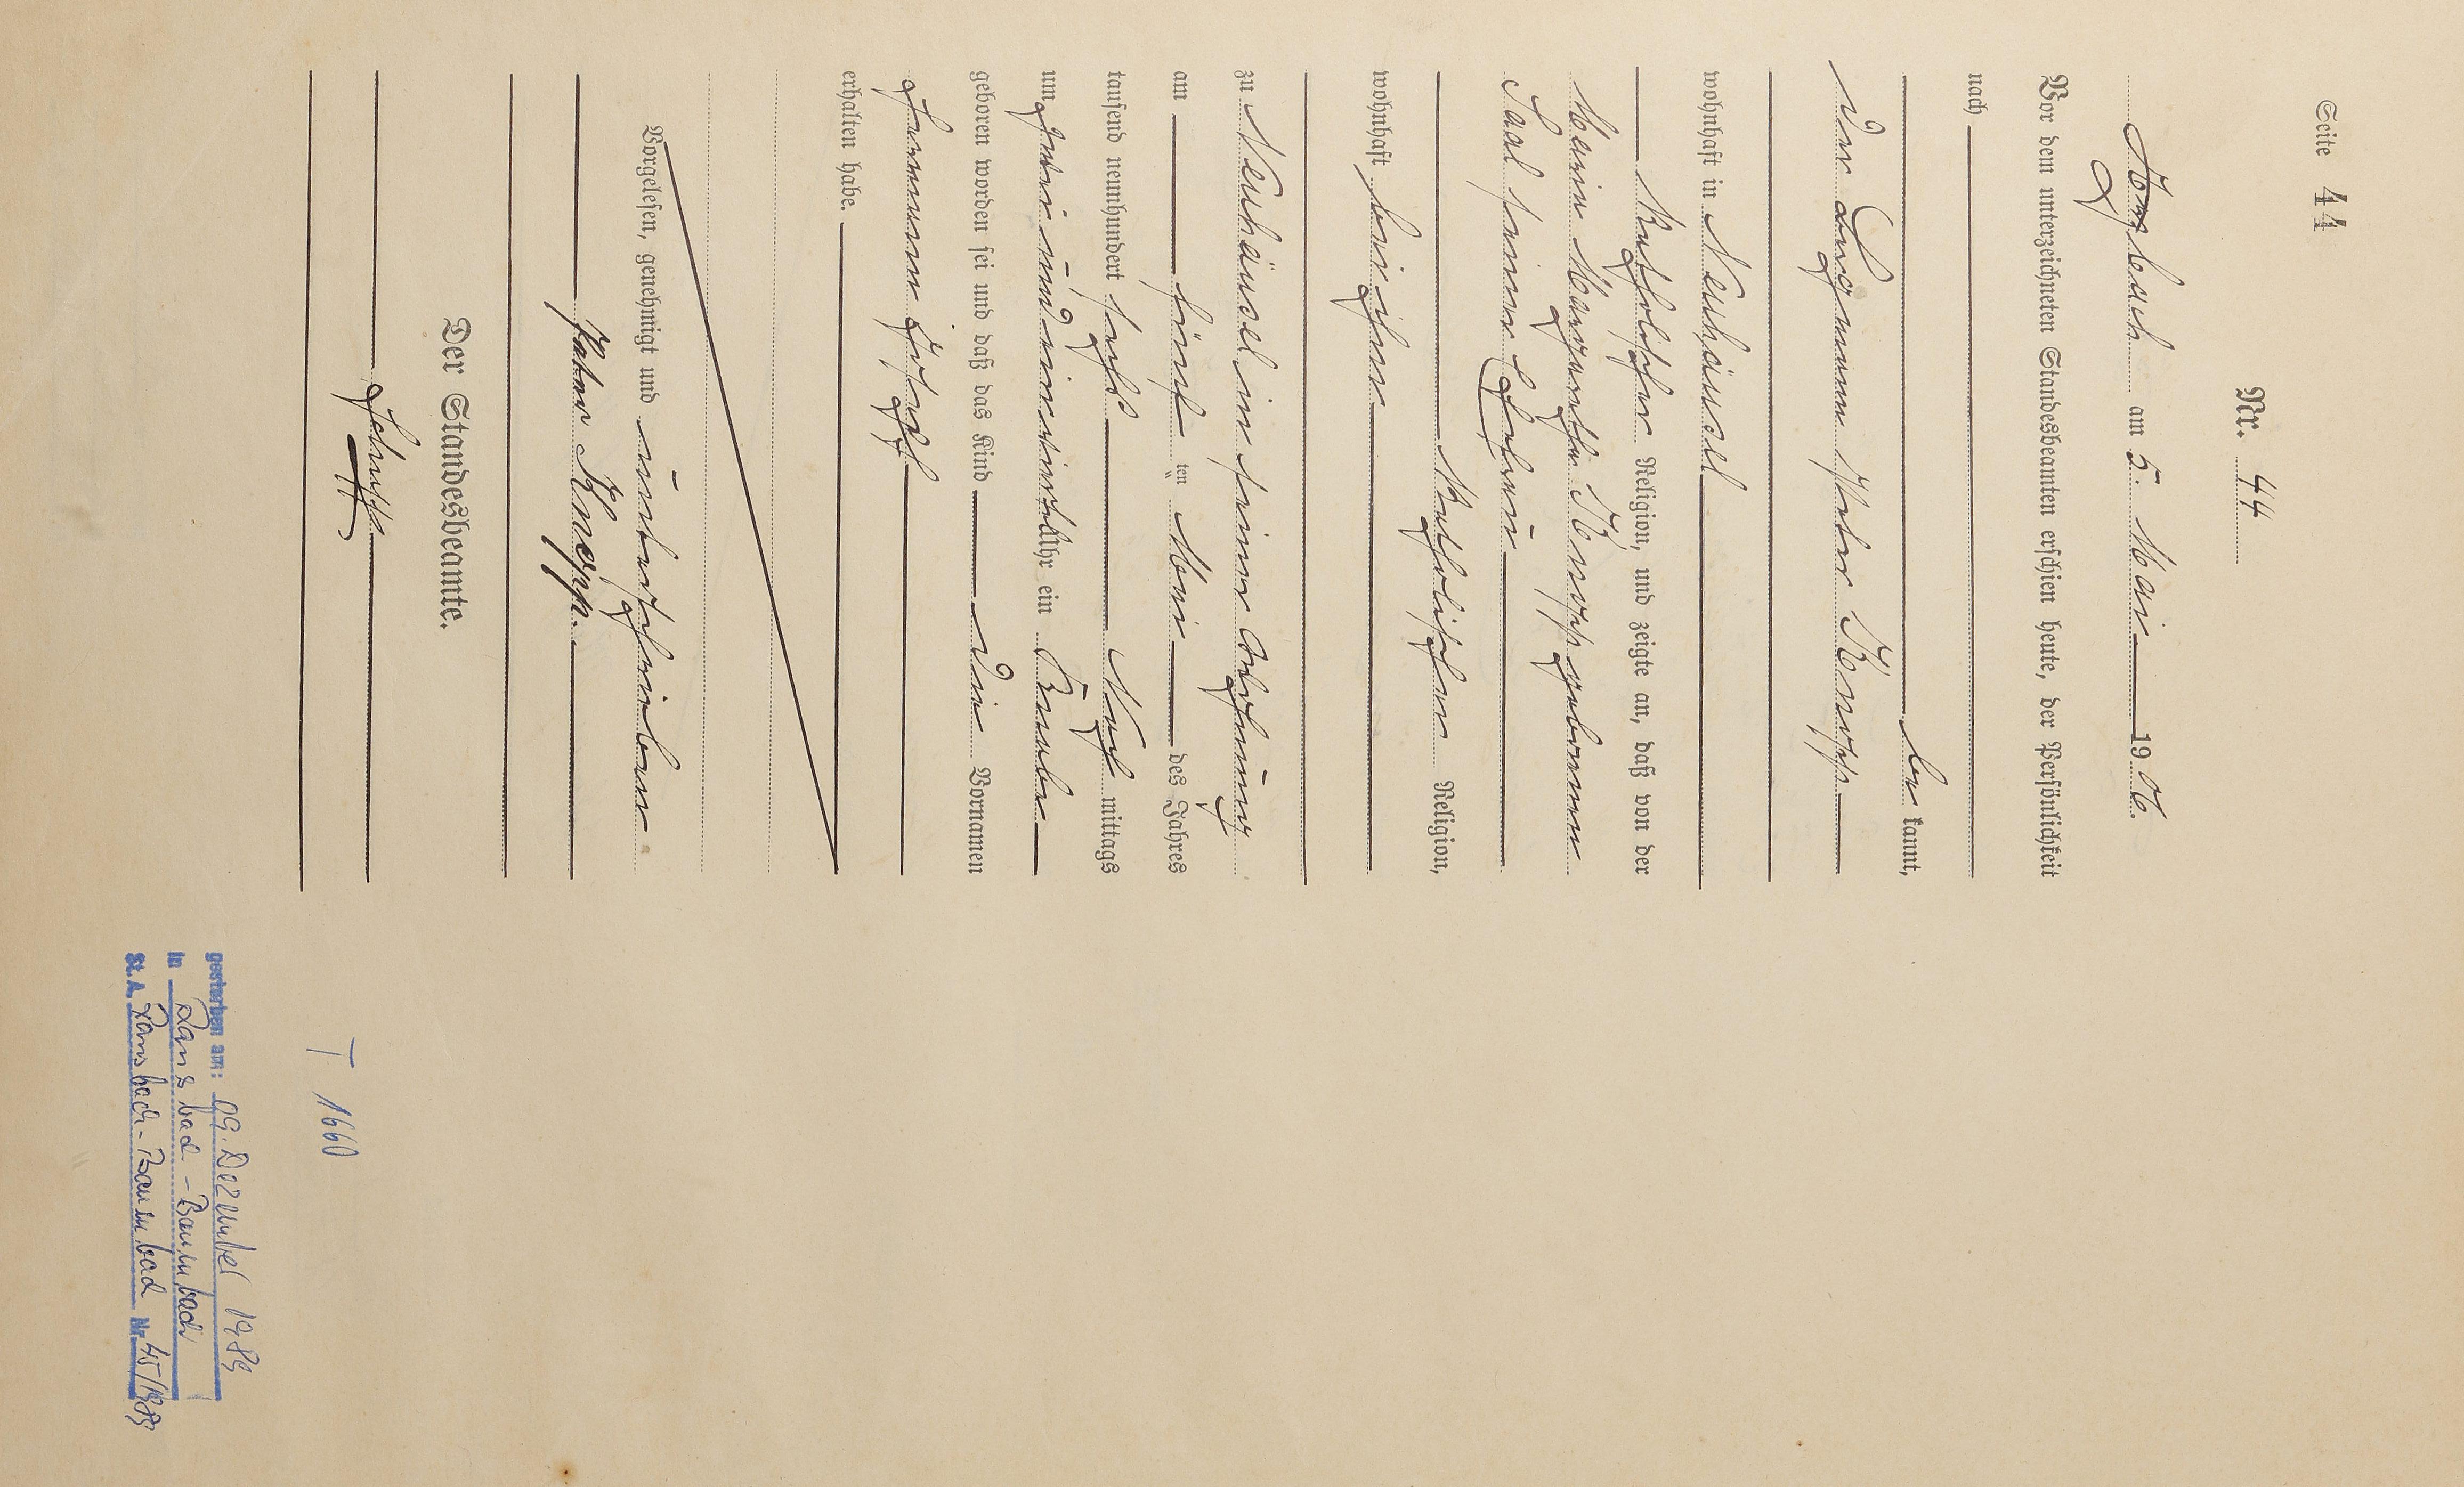 Seite 44
Nr. 44
am 5. Mai 1906.
Vor dem unterzeichneten Standesbeamten erschien heute, der Persönlichkeit
nach
be kannt,
der Bergmann Peter Knopp
wohnhaft in Neuhäusel
katholischer Religion, und zeigte an, daß von der
Maria Margaretha Knopp geborenen
Saal seiner Ehefrau
katholischer Religion,
wohnhaft bei ihm
zu Neuhäusel in seiner Wohnung
am fünf ten Mai des Jahres
tausend neunhundert sechs Nach mittags
um zwei und einviertel Uhr ein Knabe
geboren worden sei und daß das Kind die Vornamen
Hermann Joseph
erhalten habe.
Vorgelesen, genehmigt und unterschrieben
Peter Knopp.
Der Standesbeamte.
T 1660
gestorben am: 09. Dezember 1989
in Ransbach-Baumbach
St. A. Ransbach-Baumbach Nr. 45/1989